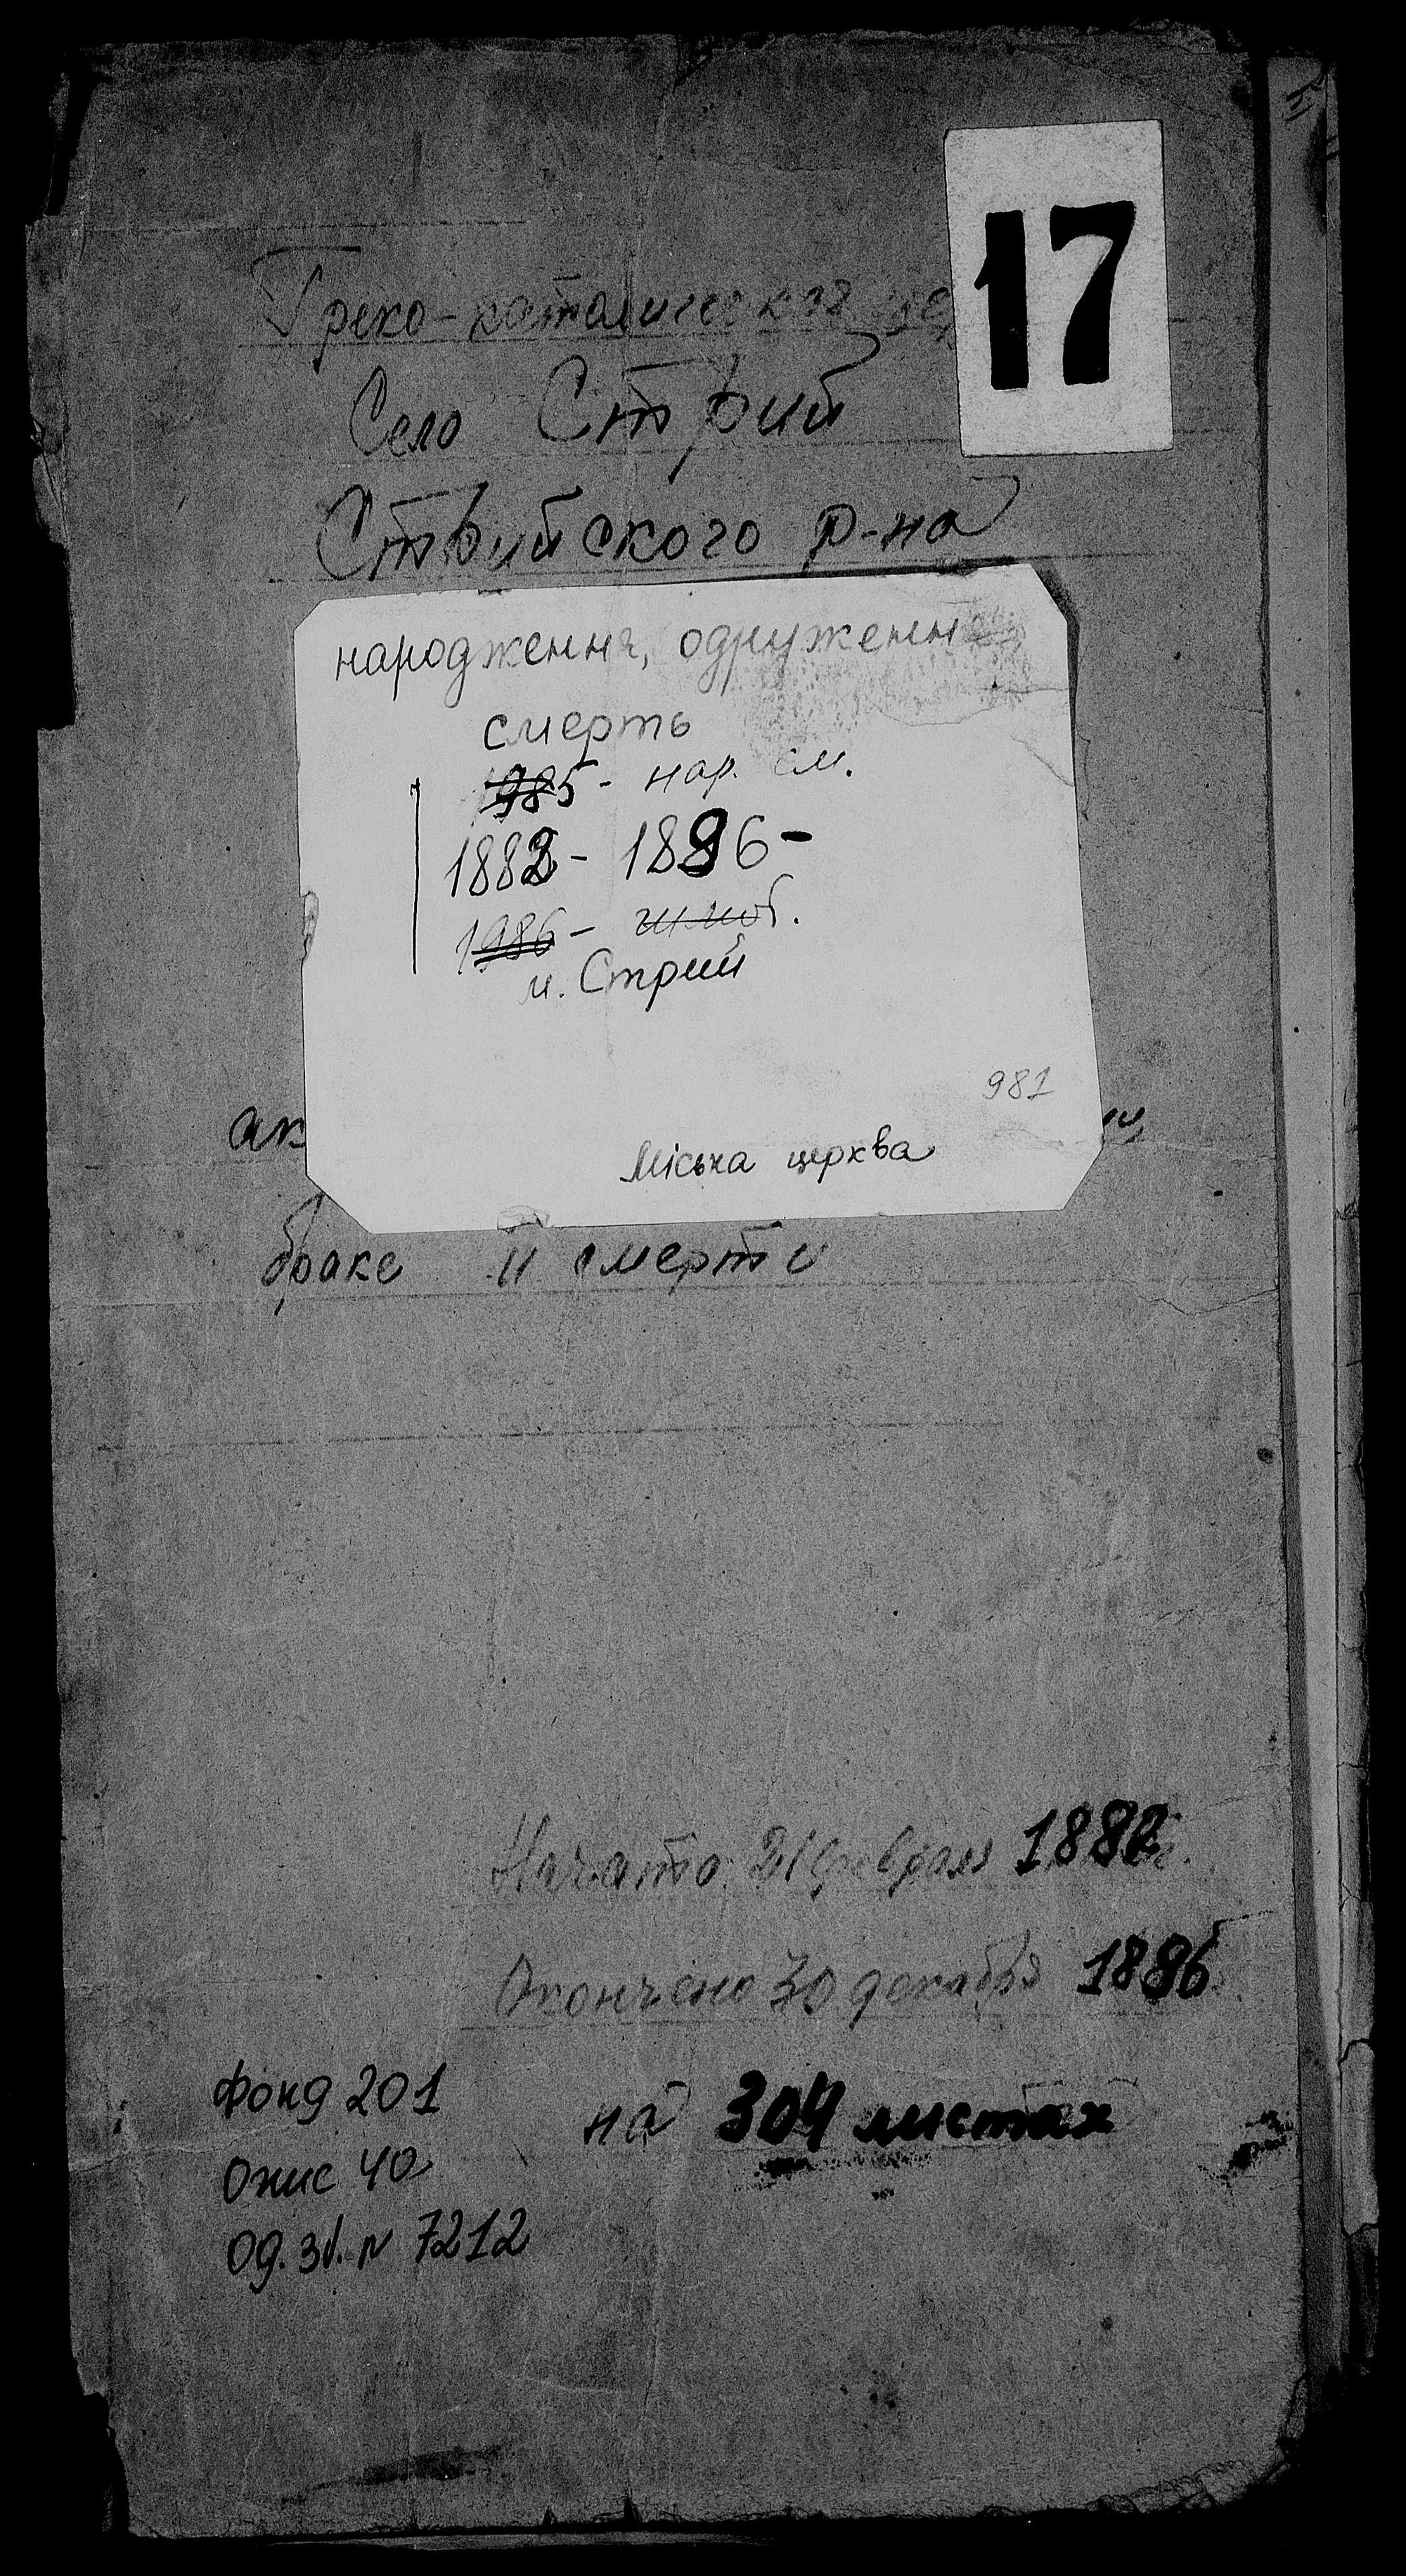 17
Греко-католическая це
Село Стрий
Стрийского р-на
народження, одруження,
смерть
1985 - нар. см.
1882 - 1886 -
1986 - шлюб.
м. Стрий
981
Міська церква
ак
браке и смерти
Начато 21 февраля 1882 г.
Окончено 30 декабря 1886
на 304 листах
Фонд 201
Опис 40
Од. зб. N 7212